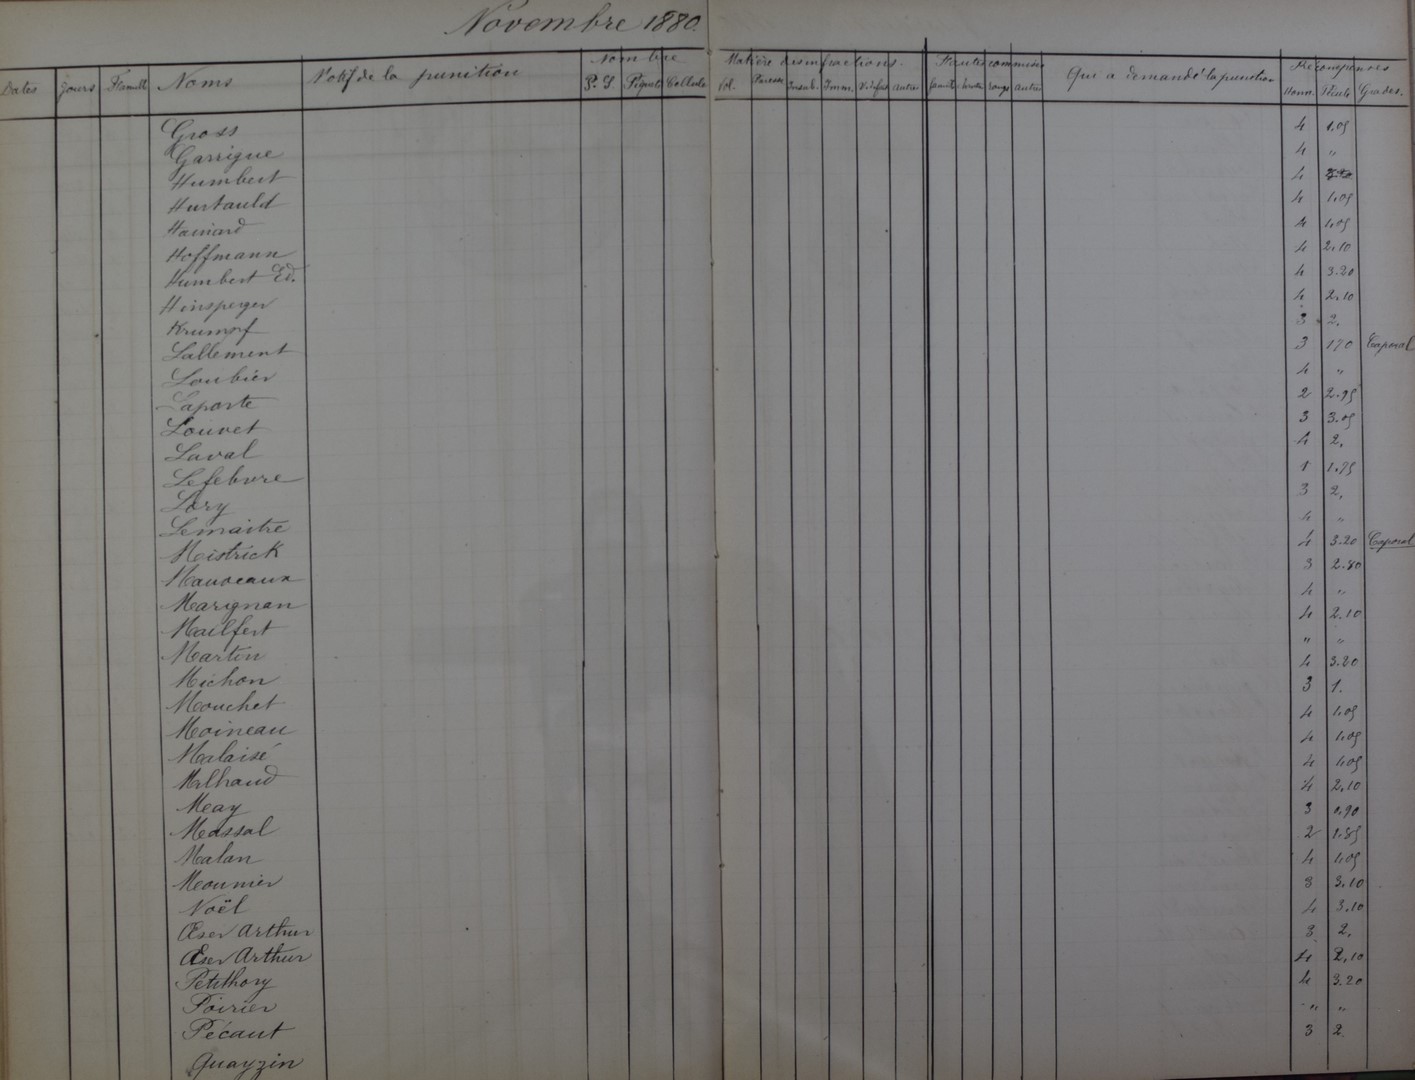 Novembre 1880.
Dates Jours Famille Noms Motif de la punition Nombre Matière des infractions. Fautes commises Qui a demandé la punition Récompenses
P. S. Piquets Cellule Paresse Insub. Imm. autres autres Honn. Grades.
Gross 4 1.05
Garrigue 4 "
Humbert 4
Hurtauld 4 1.05
Hainard 4 1.05
Hoffmann 4 2.10
Humbert Ed. 4 3.20
Hinsperger 4 2.10
Krumpf 3 2.
Lallement 3 170 Caporal
Loubier 4 "
Laporte 2 2.95
Louvet 3 3.05
Laval 4 2.
Lefebvre 1 1.95
Lory 3 2,
Lemaitre 4 "
Mistrick 4 3.20 Caporal
Mauveaux 3 2.80
Marignan 4 "
Mailfert 4 2.10
Martin " "
Michon 4 3.20
Mouchet 3 1.
Moineau 4 1.05
Malaisé 4 1.05
Milhaud 4 1.05
Meay 4 2.10
Massal 3 1.90
Malan 2 1.85
Meounier 4 1.05
Noël 3 3.10
Œser Arthur 4 3.10
Œser Arthur 3 2,
Petithory 4 2.10
Poirier 4 3.20
Pécaut " "
Quayzin 3 2